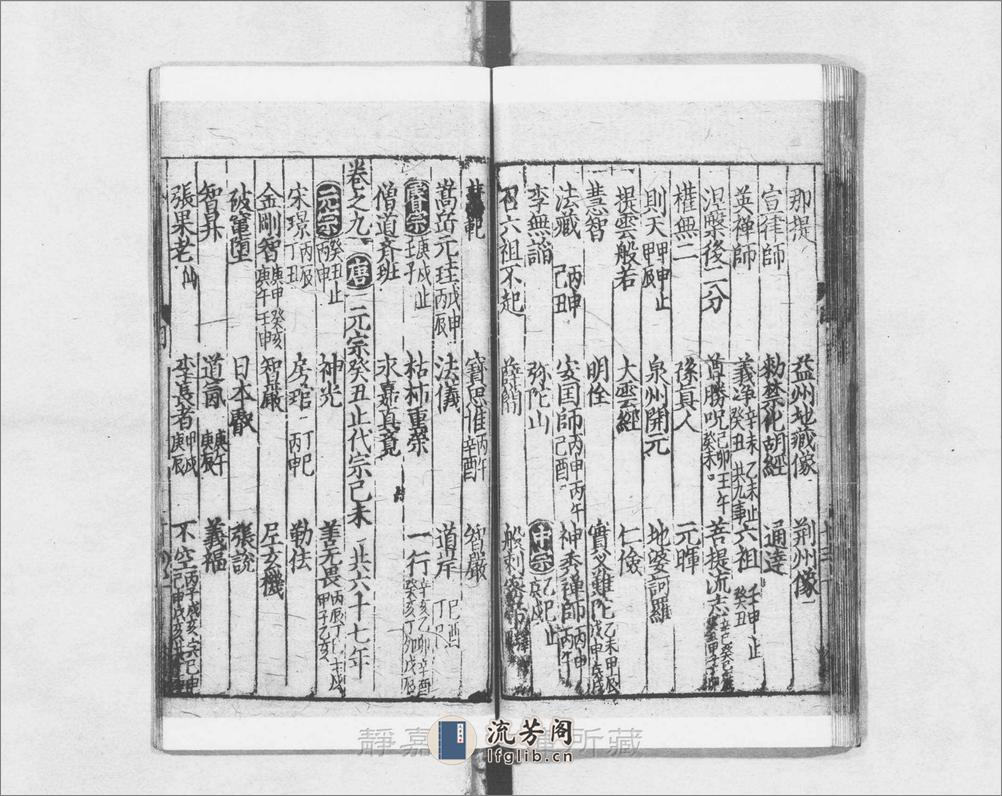 那提　益州地藏像　荆州像
宣律師　勑禁化胡經　通達
英禪師　義淨辛未乙未止癸丑共九事　六祖壬申止癸丑
涅槃後二分　尊勝呪己卯壬午癸未　菩提流志
權無二　孫真人　元暉
則天甲申止甲辰　泉州開元　地婆訶羅
提雲般若　大雲經　仁儉
慧智　明佺　實叉難陀乙未甲辰戊申
法藏丙申己丑　安国師丙申丙午己酉　神秀禪師丙申丙午
李無諂　弥陀山　中宗乙巳止
召六祖不起
寶思惟丙午辛酉　智嚴
嵩岳元珪戊申丙辰　法儀　道岸丁巳
睿宗庚戌止壬子　枯柿重榮　一行辛亥乙卯辛酉癸亥丁卯戊辰
僧道齊班　永嘉真覺
卷之九　唐　元宗癸丑止代宗己未　共六十七年
元宗癸丑止丙申　神光　善无畏丙辰丁巳甲子乙亥
宋璟丙辰丁丑　房琯丁巳丙申　勒法
金剛智庚申癸亥庚午壬申　智嚴　左玄機
破竃墮　日本叡　張說
智昇　道氤庚午庚辰　義福
張果老仙　李長者甲戌庚辰　不空
靜嘉
所藏
流芳阁
lfglib.cn